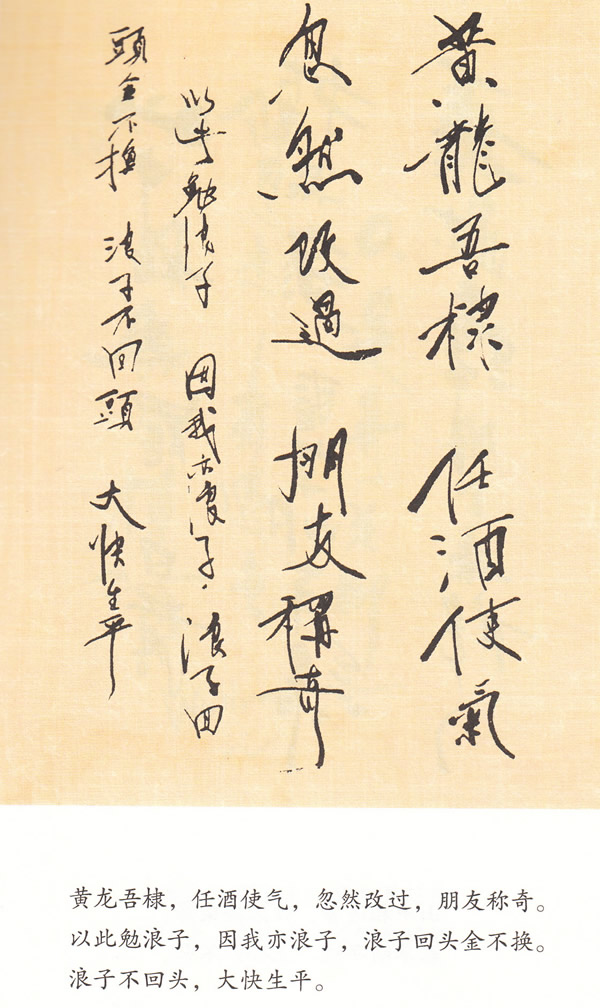 黄龍吾棣 任酒使氣
忽然改過 朋友稱奇
以此勉浪子 因我亦浪子，浪子回
頭金不換 浪子不回頭 大快生平
黄龙吾棣，任酒使气，忽然改过，朋友称奇。
以此勉浪子，因我亦浪子，浪子回头金不换。
浪子不回头，大快生平。